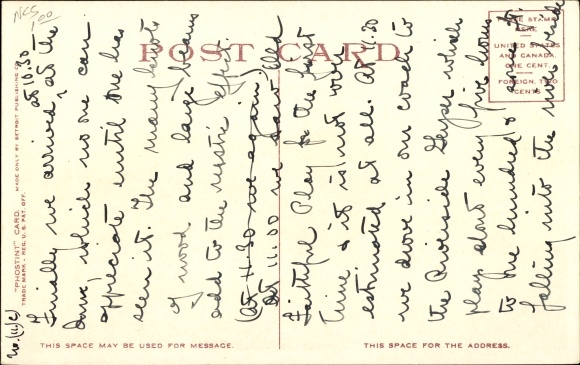 PCS
1.00
POST CARD
THE STAMP
HERE
UNITED STATES
AND CANADA.
ONE CENT.
FOREIGN, TWO
CENTS
"PHOSTINT" CARD
TRADE MARK - REG. U. S. PAT. OFF.
MADE ONLY BY DETROIT PUBLISHING CO.
No. (11)
at 10.30
Finally we arrived at the
Inn, which no one can
appreciate until one has
seen it. The many
of wood and large beams
add to the rustic effect.
(At 11.30 we again)
At 11.00 we saw Old
Faithful Play for the first
time & it is not over
estimated at all. At 11.30
we drove in our coach to
the Riverside Geyser which
plays about every five hours
to one hundred ft.
falling into the river beside
THIS SPACE MAY BE USED FOR MESSAGE.
THIS SPACE FOR THE ADDRESS.